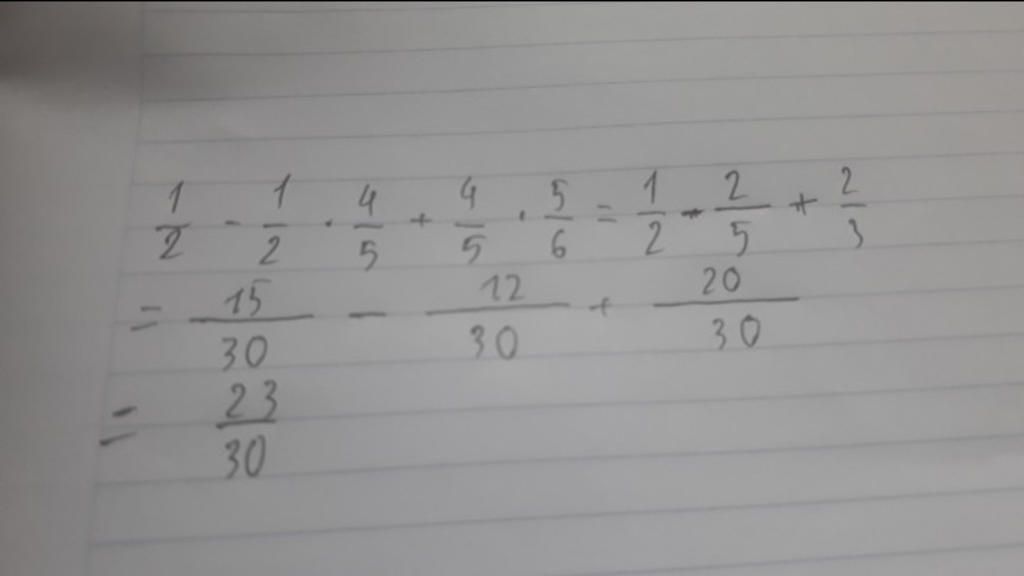 1/2 - 1/2 · 4/5 + 4/5 · 5/6 = 1/2 - 2/5 + 2/3
= 15/30 - 12/30 + 20/30
= 23/30